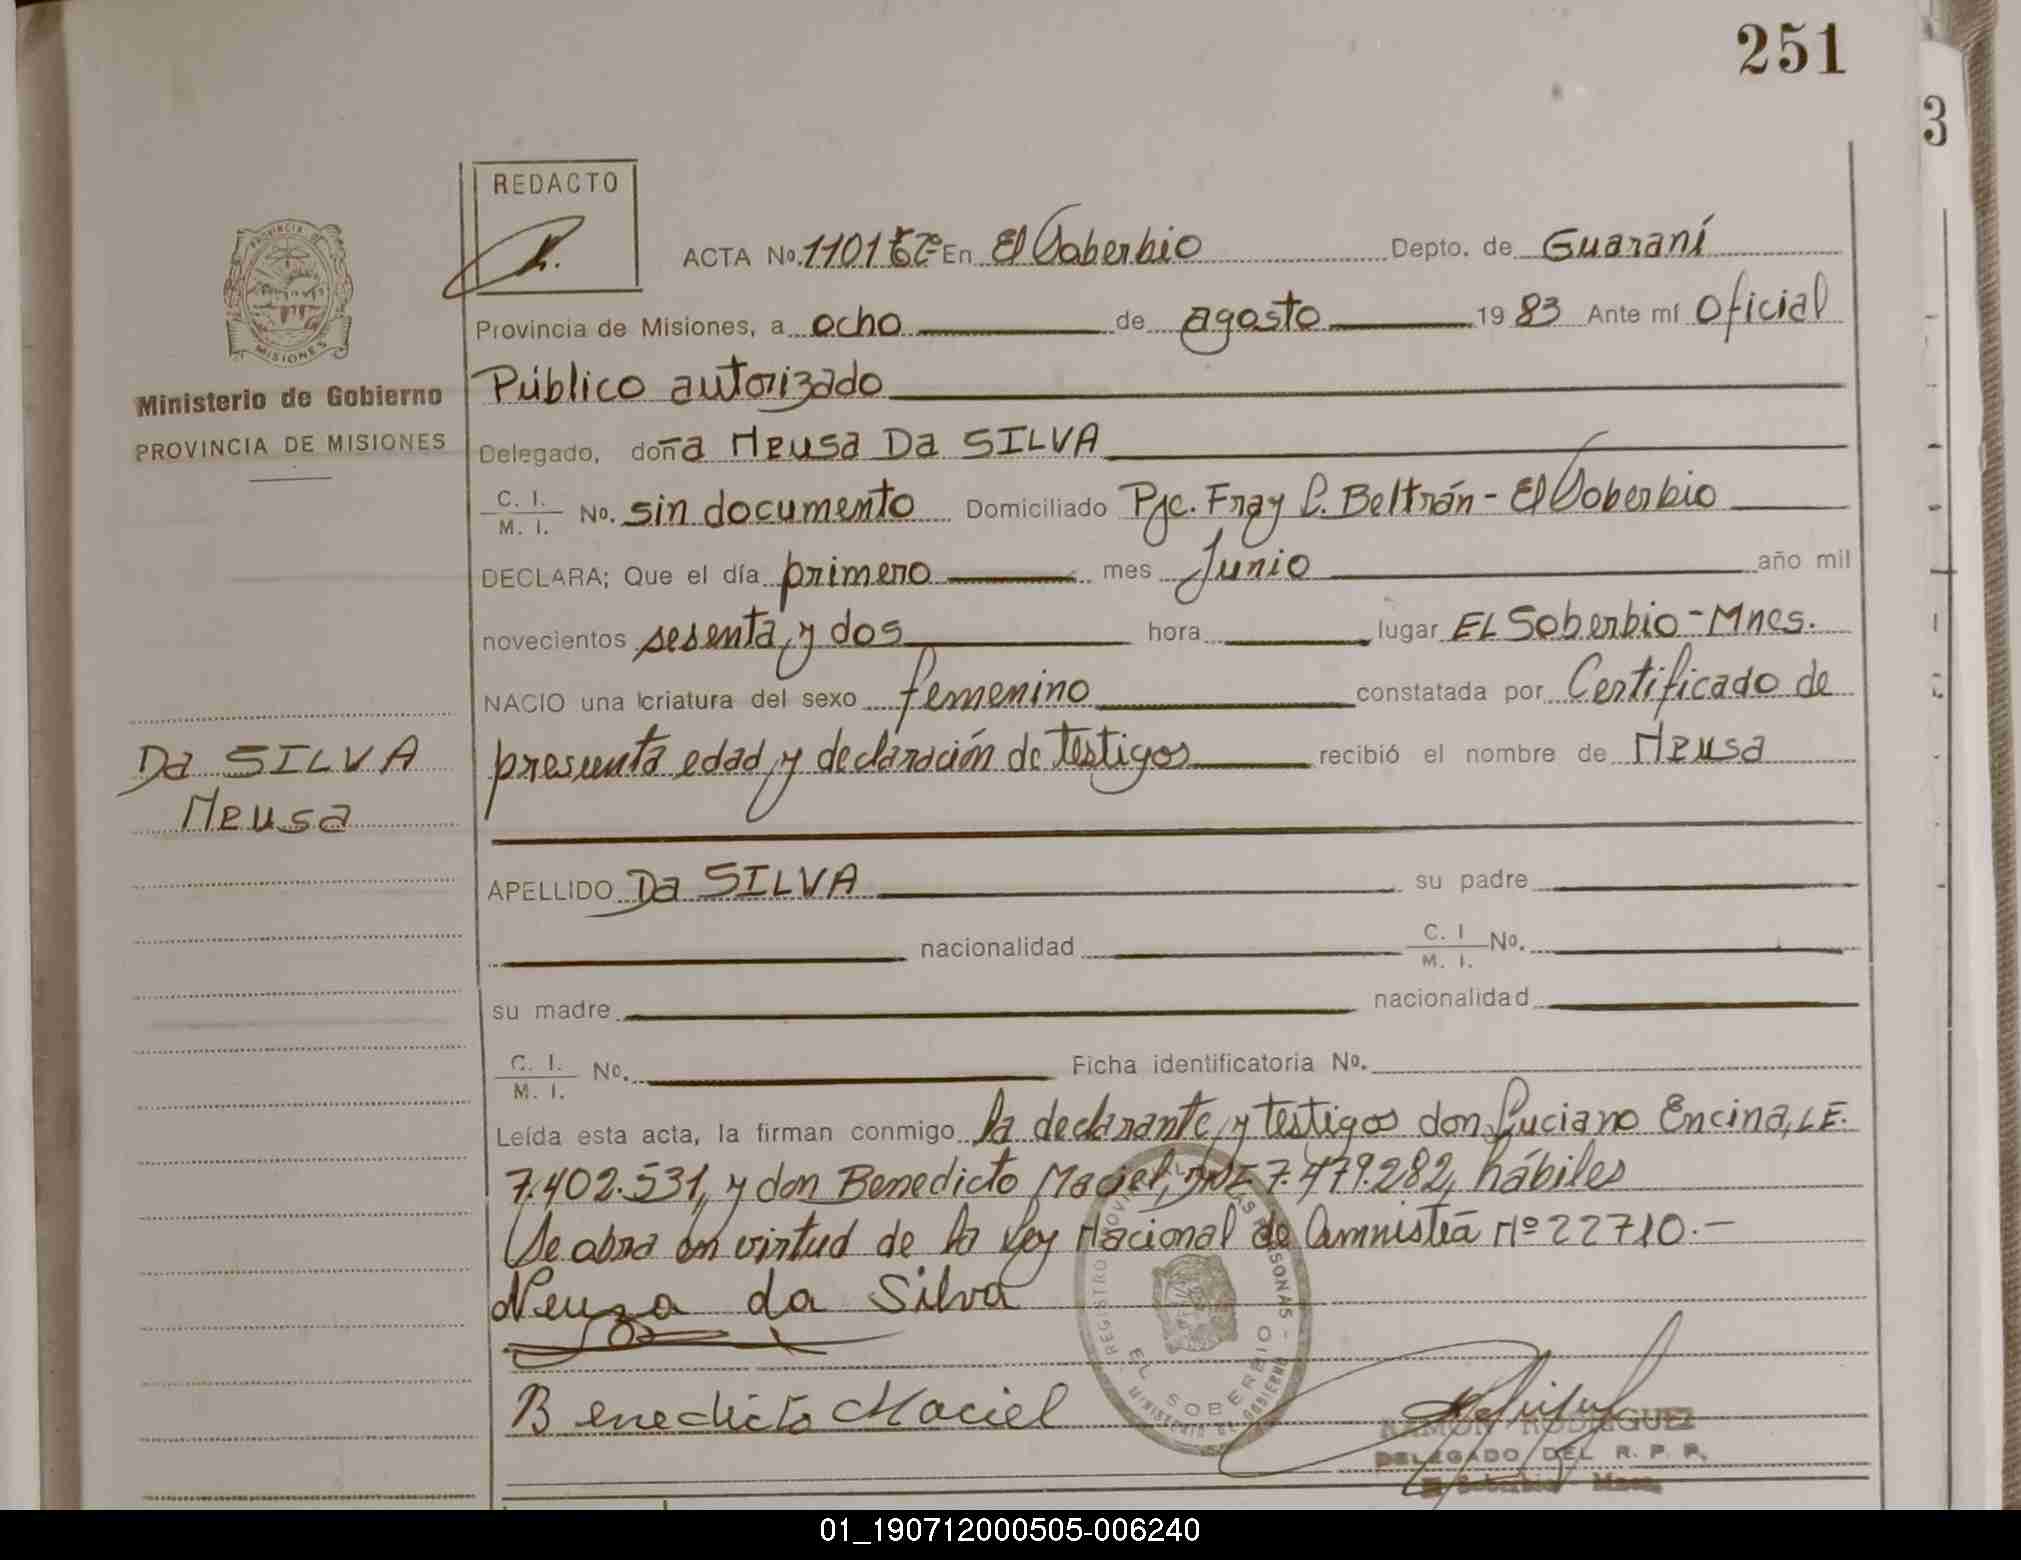 251
3
REDACTO
ACTA No. 1101 En El Soberbio Depto. de Guaraní
Provincia de Misiones, a ocho de agosto 1983 Ante mí Oficial
Ministerio de Gobierno
Público autorizado
PROVINCIA DE MISIONES
Delegado, doña Neusa Da SILVA
C. I.
M. I. No. sin documento Domiciliado Pje. Fray L. Beltrán - El Soberbio
DECLARA; Que el día primero mes Junio año mil
novecientos sesenta y dos hora lugar EL Soberbio - Mnes.
NACIO una criatura del sexo femenino constatada por Certificado de
Da SILVA
Neusa
presunta edad y declaración de testigos recibió el nombre de Neusa
APELLIDO Da SILVA su padre
nacionalidad C. I
M. I. No.
su madre nacionalidad
C. I.
M. I. No. Ficha identificatoria No.
Leída esta acta, la firman conmigo la declarante y testigos don Luciano Encina, L.E.
7.402.531, y don Benedicto Maciel, DNI 7.479.282, hábiles
Se abra en virtud de la Ley Nacional de Amnistía Nº 22710.-
Neuza da Silva
Benedicto Maciel
PROVINCIA DE MISIONES
EL SOBERBIO
MINISTERIO DE GOBIERNO
RAMON RODRIGUEZ
DELEGADO DEL R. P. P.
El Soberbio Mnes.
01_190712000505-006240